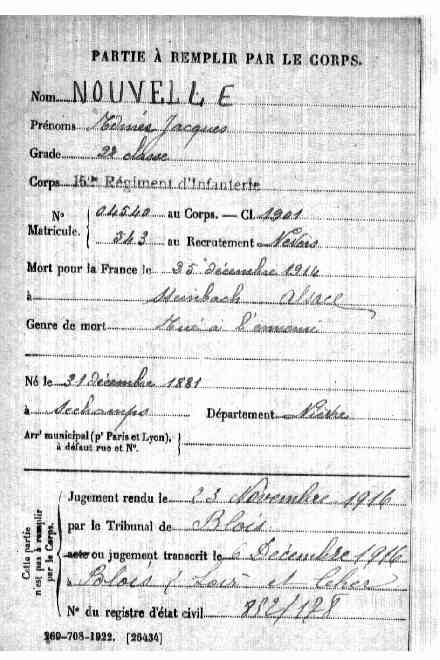 PARTIE À REMPLIR PAR LE CORPS.
Nom NOUVELLE
Prénoms Edmés Jacques
Grade 2e classe
Corps 152e Régiment d'Infanterie
N° Matricule. { 04540 au Corps. — Cl. 1901
543 au Recrutement Nevers
Mort pour la France le 25 décembre 1914
à Steinbach Alsace
Genre de mort Tué à l'ennemi
Né le 31 Décembre 1881
à Département Nièvre
Arrt municipal (pr Paris et Lyon),
à défaut rue et N°.
Cette partie
n'est pas à remplir
par le Corps.
Jugement rendu le 23 Novembre 1916
par le Tribunal de Blois
acte ou jugement transcrit le 6 Décembre 1916
à Blois / Loir et Cher
N° du registre d'état civil 852/178
269-708-1922. [26434]